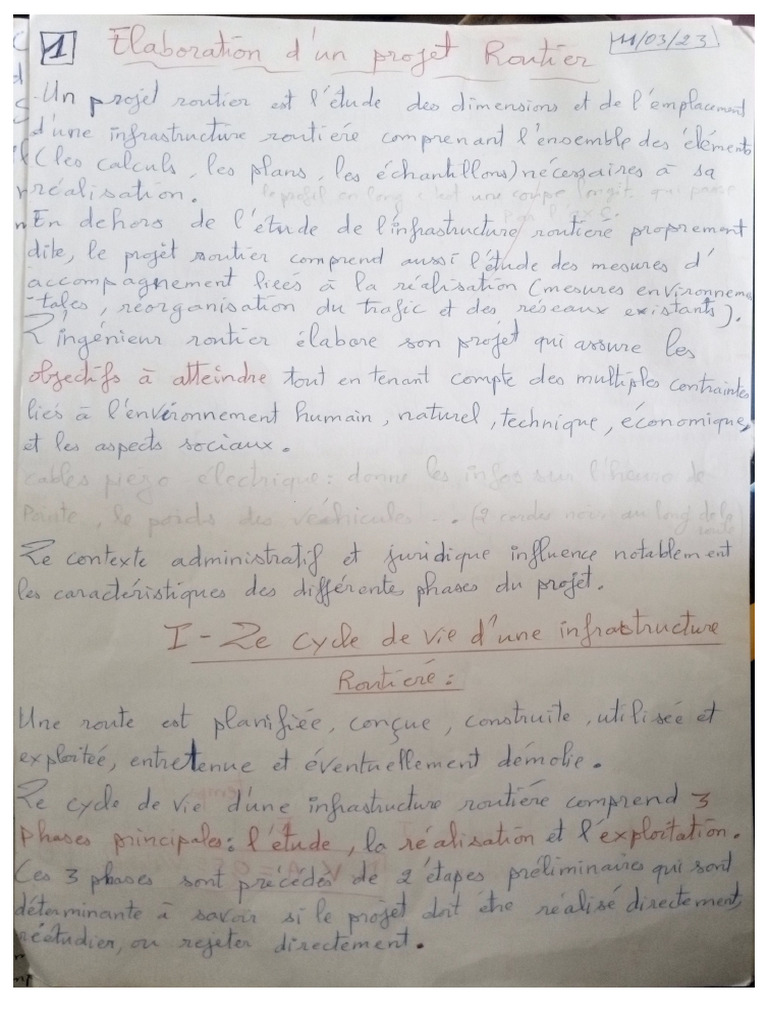 1 Elaboration d'un projet Routier 11/03/23
Un projet routier est l'étude des dimensions et de l'emplacement
d'une infrastructure routiére comprenant l'ensemble des éléments
(les calculs, les plans, les échantillons) nécessaires à sa
réalisation.
le profil en long c'est une coupe longit. qui passe
par l'axe.
En dehors de l'étude de l'infrastructure routiere proprement
dite, le projet routier comprend aussi l'étude des mesures d'
accompagnement lieés à la réalisation (mesures environneme
-tales, réorganisation du trafic et des réseaux existants).
L'ingénieur routier élabore son projet qui assure les
objectifs à atteindre tout en tenant compte des multiples contraintes
liés à l'environnement humain, naturel, technique, économique,
et les aspects sociaux.
cables piezo électrique: donne les infos sur l'heure de
pointe, le poids des véhicules... (2 cordes noir au long de la
route
Le contexte administratif et juridique influence notablement
les caractéristiques des différentes phases du projet.
I - Le cycle de vie d'une infrastructure
Routiéré:
Une route est planifiée, conçue, construite, utilisée et
exploiteé, entretenue et éventuellement démolie.
Le cycle de vie d'une infrastructure routiére comprend 3
phases principales: l'étude, la réalisation et l'exploitation.
Ces 3 phases sont précédés de 2 étapes préliminaires qui sont
déterminante à savoir si le projet doit être réalisé directement,
réétudier, ou rejeter directement.